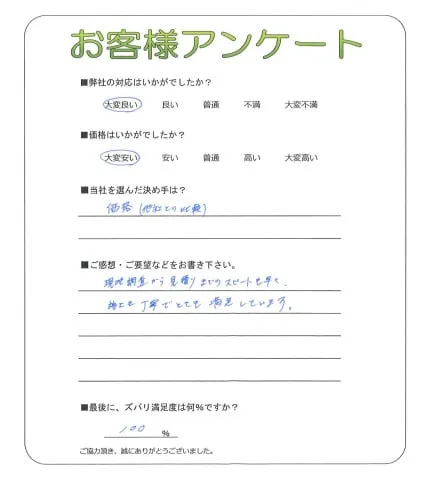 お客様アンケート
■弊社の対応はいかがでしたか？
大変良い 良い 普通 不満 大変不満
■価格はいかがでしたか？
大変安い 安い 普通 高い 大変高い
■当社を選んだ決め手は？
価格（他社との比較）
■ご感想・ご要望などをお書き下さい。
現地調査から見積りまでのスピードも早く、
施工も丁寧でとても満足しています。
■最後に、ズバリ満足度は何％ですか？
100 %
ご協力頂き、誠にありがとうございました。